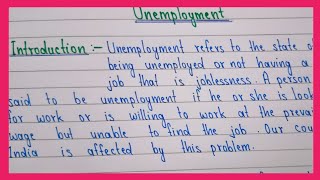 Unemployment
Introduction :- Unemployment refers to the state of
being unemployed or not having a
job that is joblessness. A person
said to be unemployment if he or she is look
for work or is willing to work at the prevai
wage but unable to find the job. Our cou
India is affected by this problem.